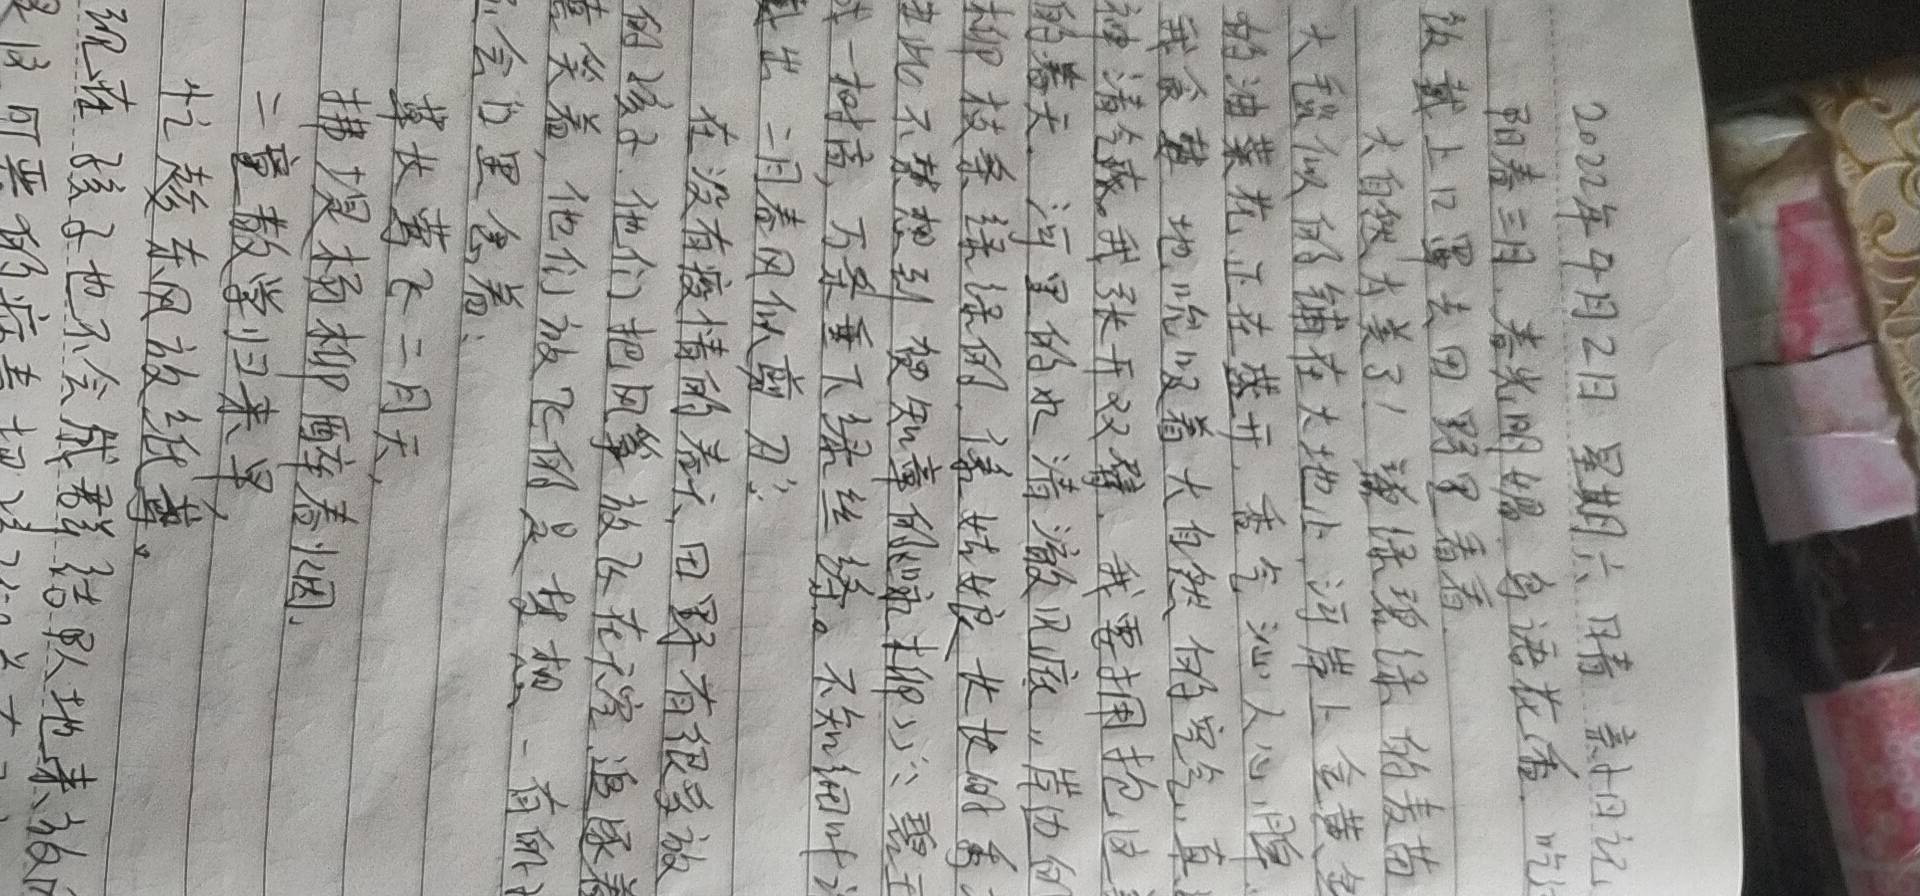 2022年4月2日 星期六 晴 亲日记
阳春三月,春光明媚,鸟语花香,吃
饭戴上口罩去田野里看看
大自然太美了!碧绿碧绿的麦苗
大毯似的铺在大地上,河岸上金黄
的油菜花正在盛开,香气沁人心脾
我贪婪地吮吸着大自然的空气,真
神清气爽。我张开双臂,我要拥抱这
的春天。河里的水清澈见底,岸边的
柳枝条绿绿的,像姑娘长长的秀
由此不禁想到贺知章的《咏柳》:碧玉
成一树高,万条垂下绿丝绦。不知细叶
裁出,二月春风似剪刀
在没有疫情的春天,田野有很多放
的孩子,他们把风筝放飞在天空,追逐着
笑着,他们放飞的是梦想,有的
不会力里念着:
草长莺飞二月天,
拂堤杨柳醉春烟。
二童散学归来早
忙趁东风放纸鸢。
现在孩子也不会成群结队地来放风
可恶的病毒